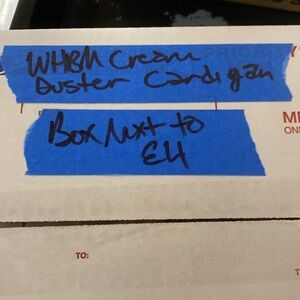 WHBM Cream
Duster Cardigan
Box Next to
E4
TO: